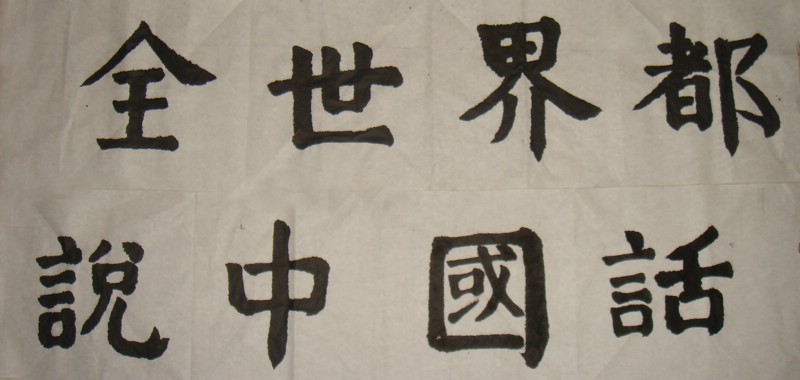 全世界都
說中國話